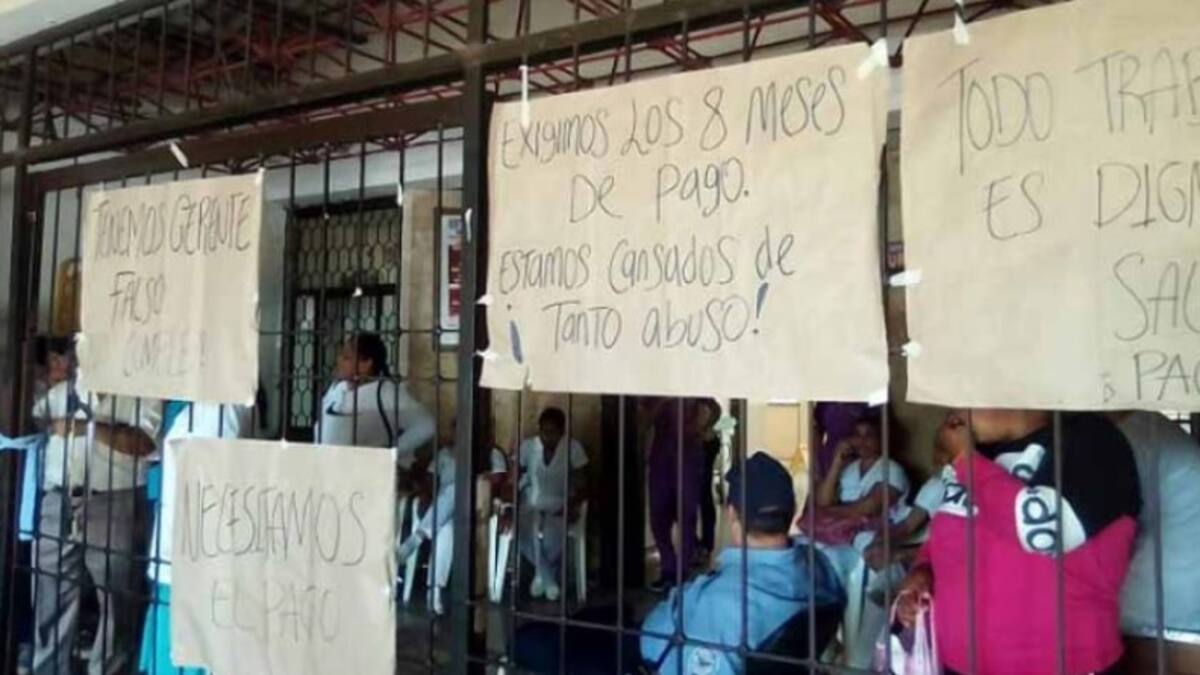 TENEMOS GERENTE
FALSO
CUMPLE!
EXIGIMOS LOS 8 MESES
DE PAGO.
ESTAMOS CANSADOS de
¡TANTO abuso!
TODO TRAB
ES DIGN
SAL
PAG
NECESITAMOS
EL PAGO
adida